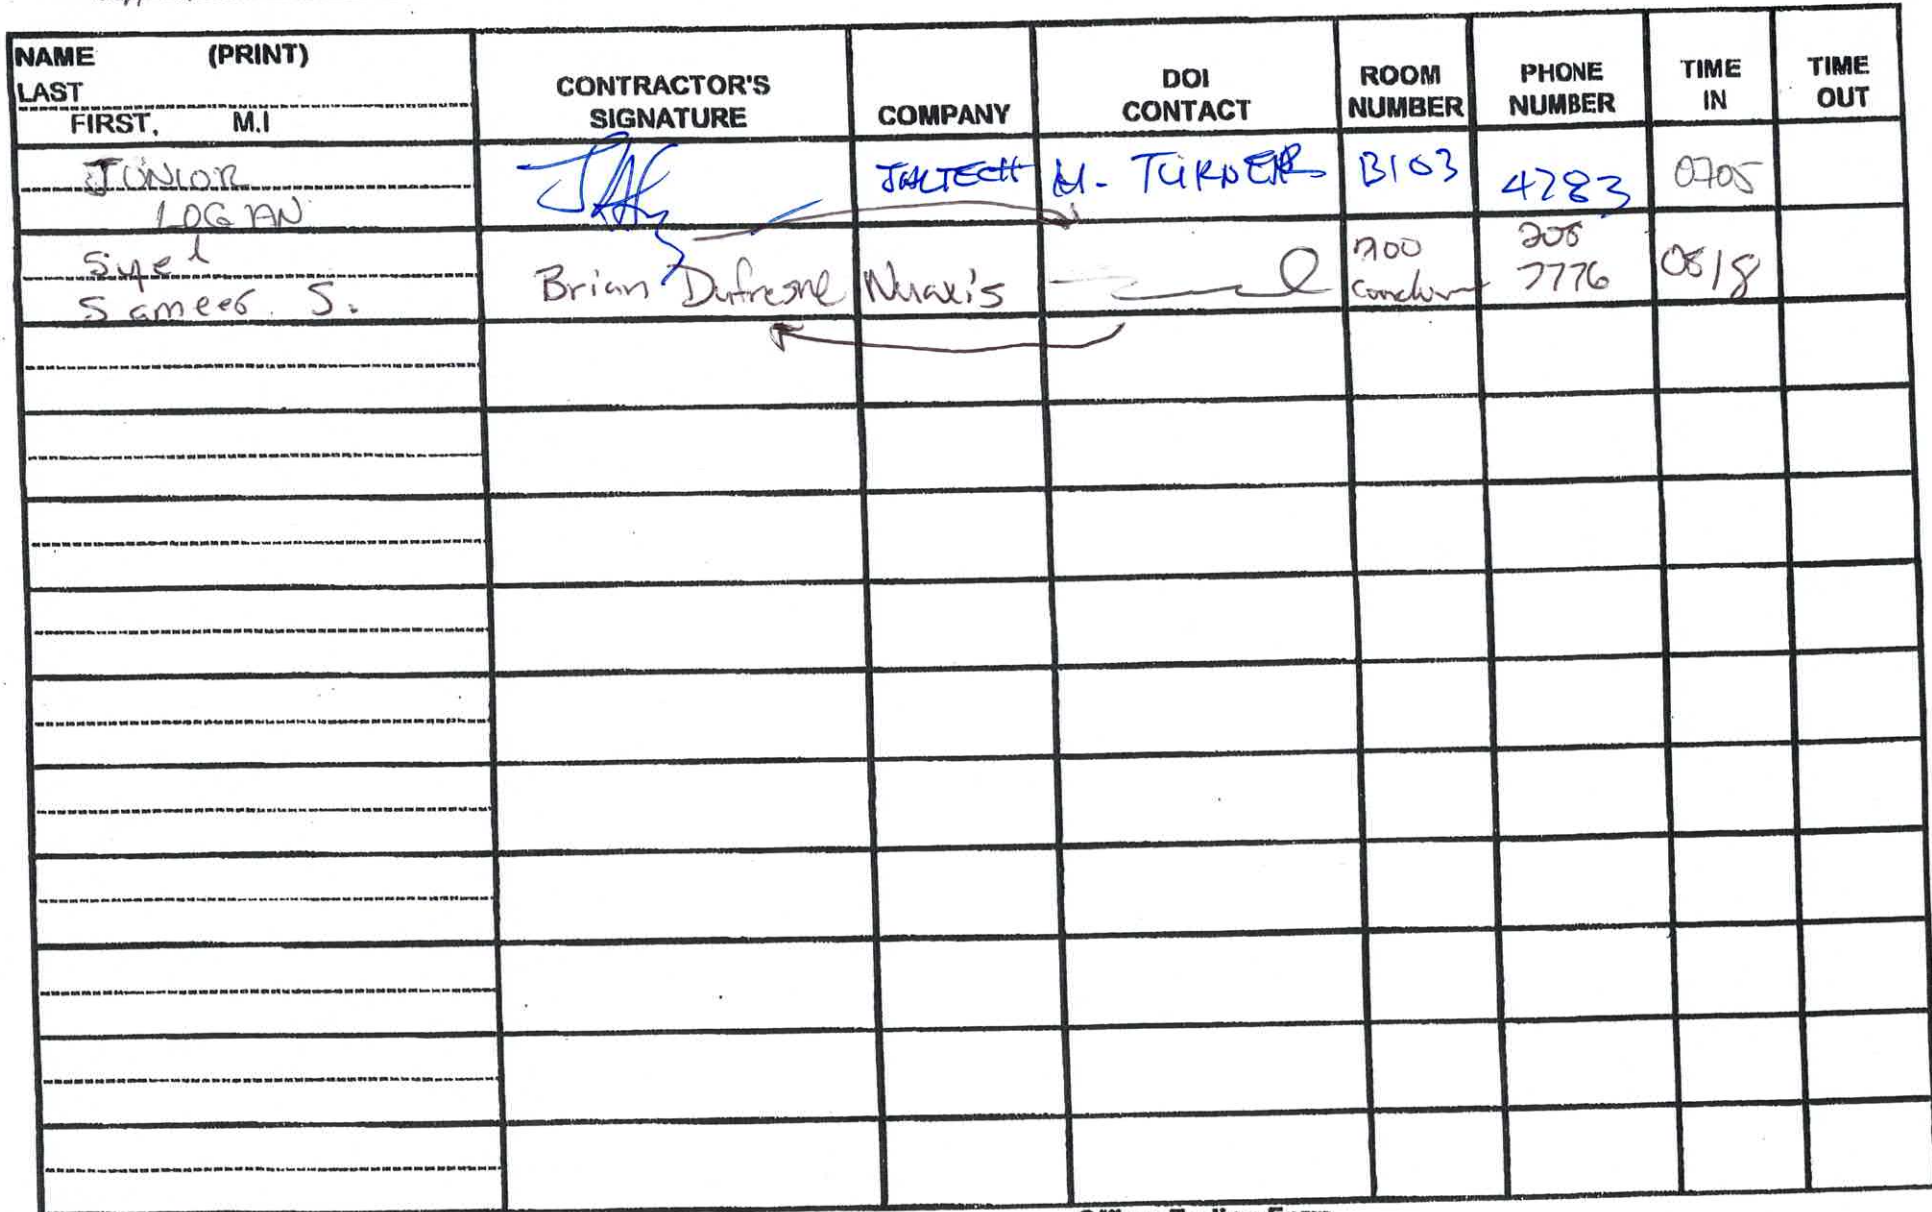 NAME (PRINT)
LAST
FIRST, M.I
CONTRACTOR'S
SIGNATURE
COMPANY
DOI
CONTACT
ROOM
NUMBER
PHONE
NUMBER
TIME
IN
TIME
OUT
JUNIOR
LOGAN
JALTECH
M. TURNER
B103
4283
0705
Syed
Sameer S.
Brian Dufresne
Nuaxis
700
208
7776
0818